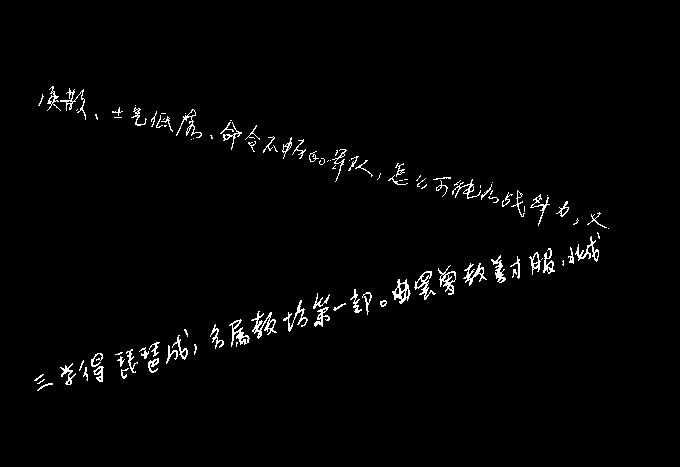 涣散、士气低落、命令不畅的军队,怎么可能有战斗力,又
三学得琵琶成,名属教坊第一部。曲罢曾教善才服,妆成